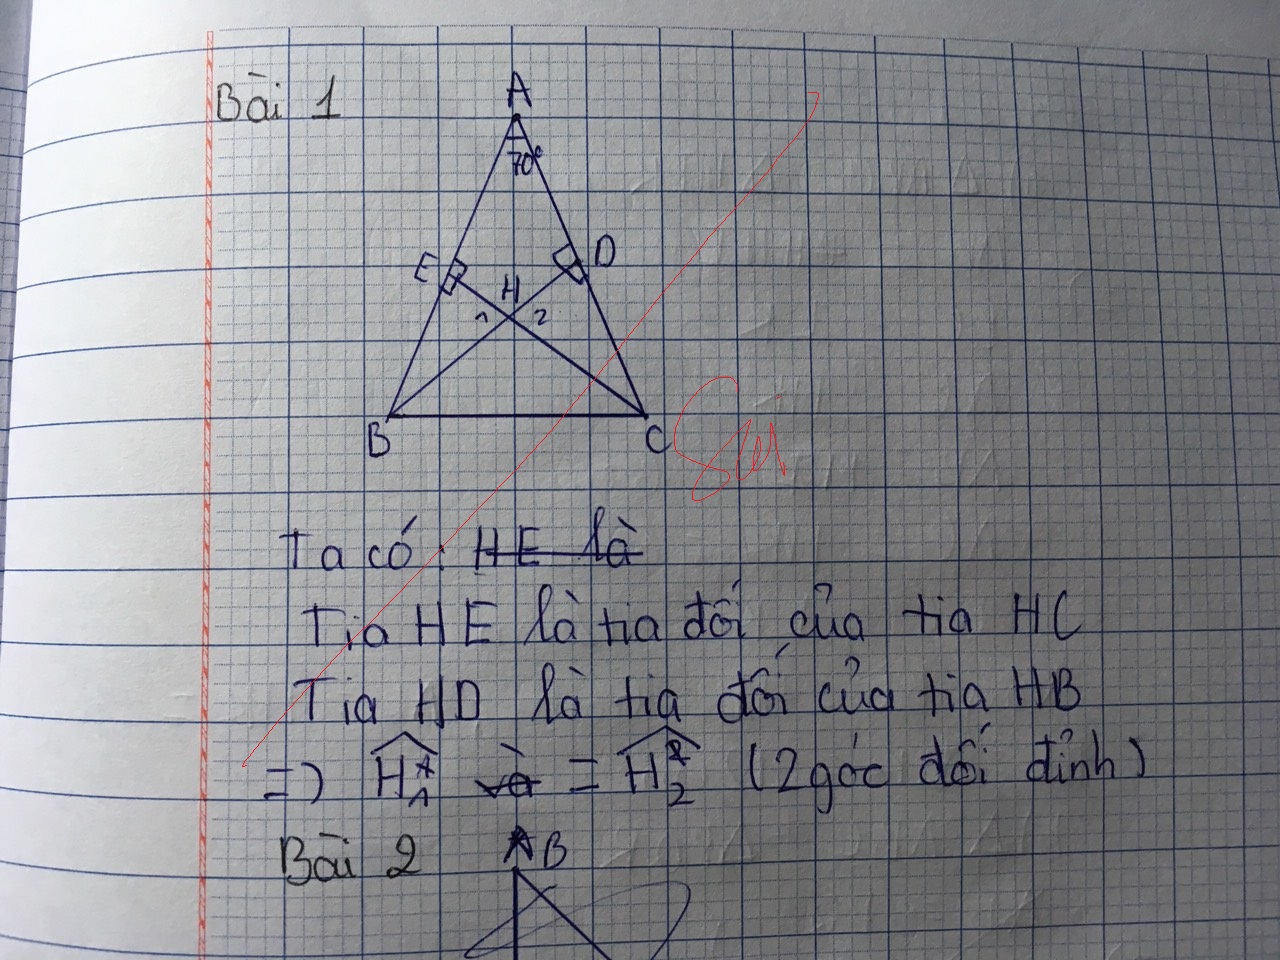 Bài 1
A
70°
E
D
H
1 2
B
C
Sai
Ta có: HE là
Tia HE là tia đối của tia HC
Tia HD là tia đối của tia HB
=> H1 và = H2 (2 góc đối đỉnh)
Bài 2
B